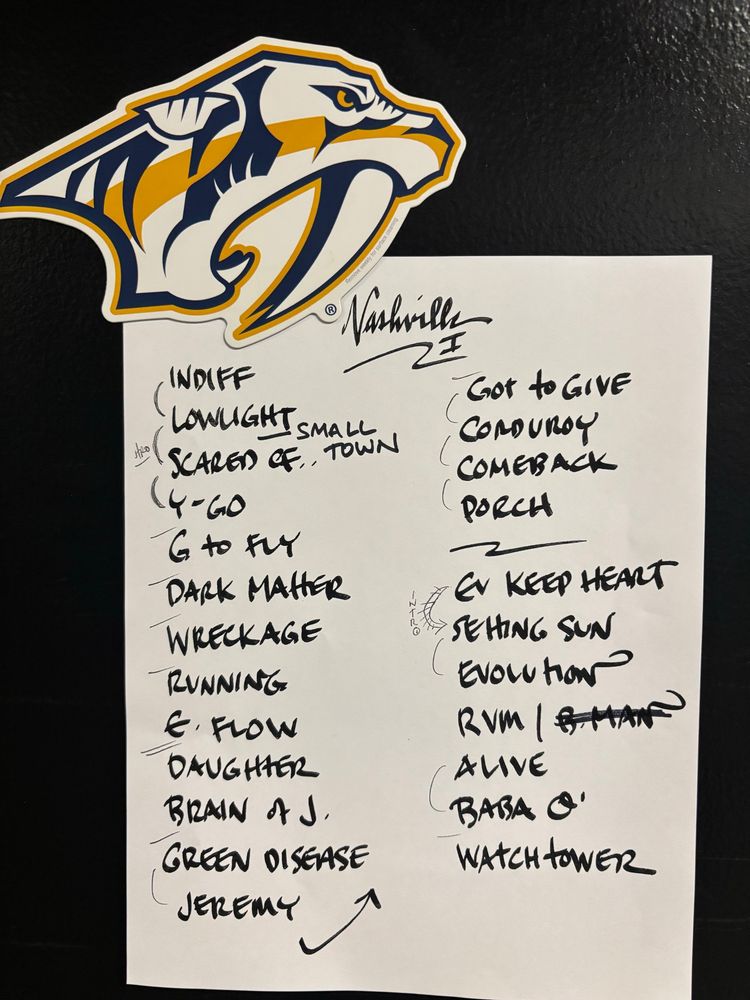 Nashville
I
INDIFF
LOWLIGHT
SMALL TOWN
SCARED OF..
Y-GO
G to FLY
DARK MATTER
WRECKAGE
RUNNING
E. FLOW
DAUGHTER
BRAIN of J.
GREEN DISEASE
JEREMY
GOT to GIVE
CORDUROY
COMEBACK
PORCH
EV KEEP HEART
INTRO
SETTING SUN
EVOLUTION
RVM / B. MAN
ALIVE
BABA O'
WATCHTOWER
®